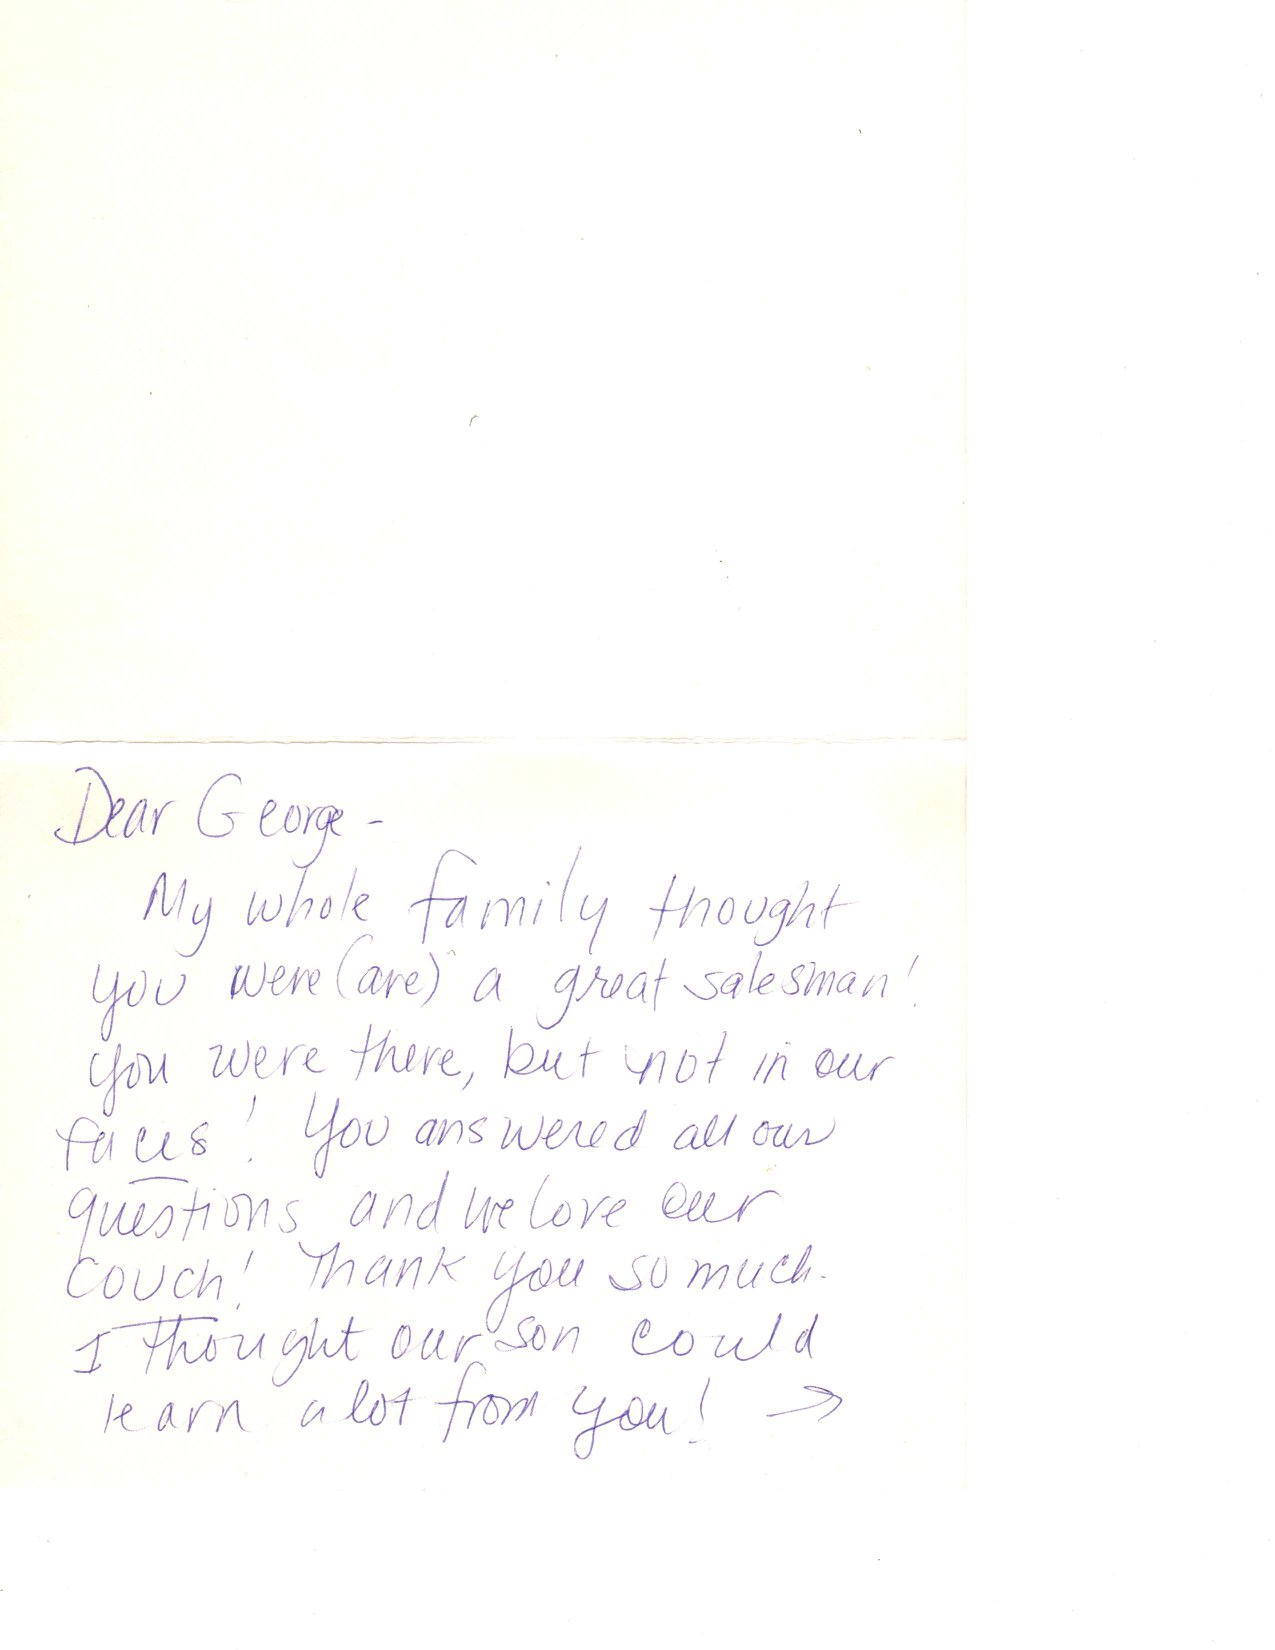 Dear George -
My whole family thought
you were (are) a great salesman!
You were there, but not in our
faces! You answered all our
questions and we love our
couch! Thank you so much.
I thought our son could
learn a lot from you! →